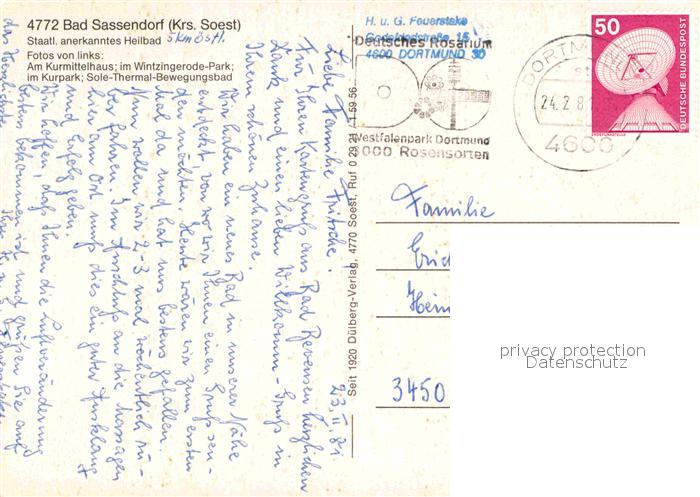 4772 Bad Sassendorf (Krs. Soest)
Staatl. anerkanntes Heilbad
Fotos von links:
Am Kurmittelhaus; im Wintzingerode-Park;
im Kurpark; Sole-Thermal-Bewegungsbad
H. u. G. Feuerstake
4600 DORTMUND 30
Deutsches Rosarium
Westfalenpark Dortmund
3000 Rosensorten
DORTMUND
24.2.8
4600
50
DEUTSCHE BUNDESPOST
ERDEFUNKSTELLE
Seit 1920 Dülberg-Verlag, 4770 Soest, Ruf 0 29 21 / 1 59 56
23.II.81
Liebe Familie Fritsche!
Für Ihren Kartengruß aus Bad Bevensen herzlichen
Dank und einen lieben Willkomm-Gruß in
Ihrem schönen Zuhause.
Wir haben ein neues Bad in unserer Nähe
entdeckt von wo wir Ihnen einen Gruß sen-
den möchten. Heute waren wir zum ersten
Mal da und hat uns bestens gefallen.
Nun wollen wir 2-3 mal wöchentlich rü-
berfahren. Im Anschluß an die Massagen
hier am Ort muß dies ein guter Ausklang
und Erfolg geben.
Wir hoffen, daß Ihnen die Luftveränderung
bestens bekommen ist und grüßen Sie auf
das herzlichste
Familie
3450
privacy protection
Datenschutz